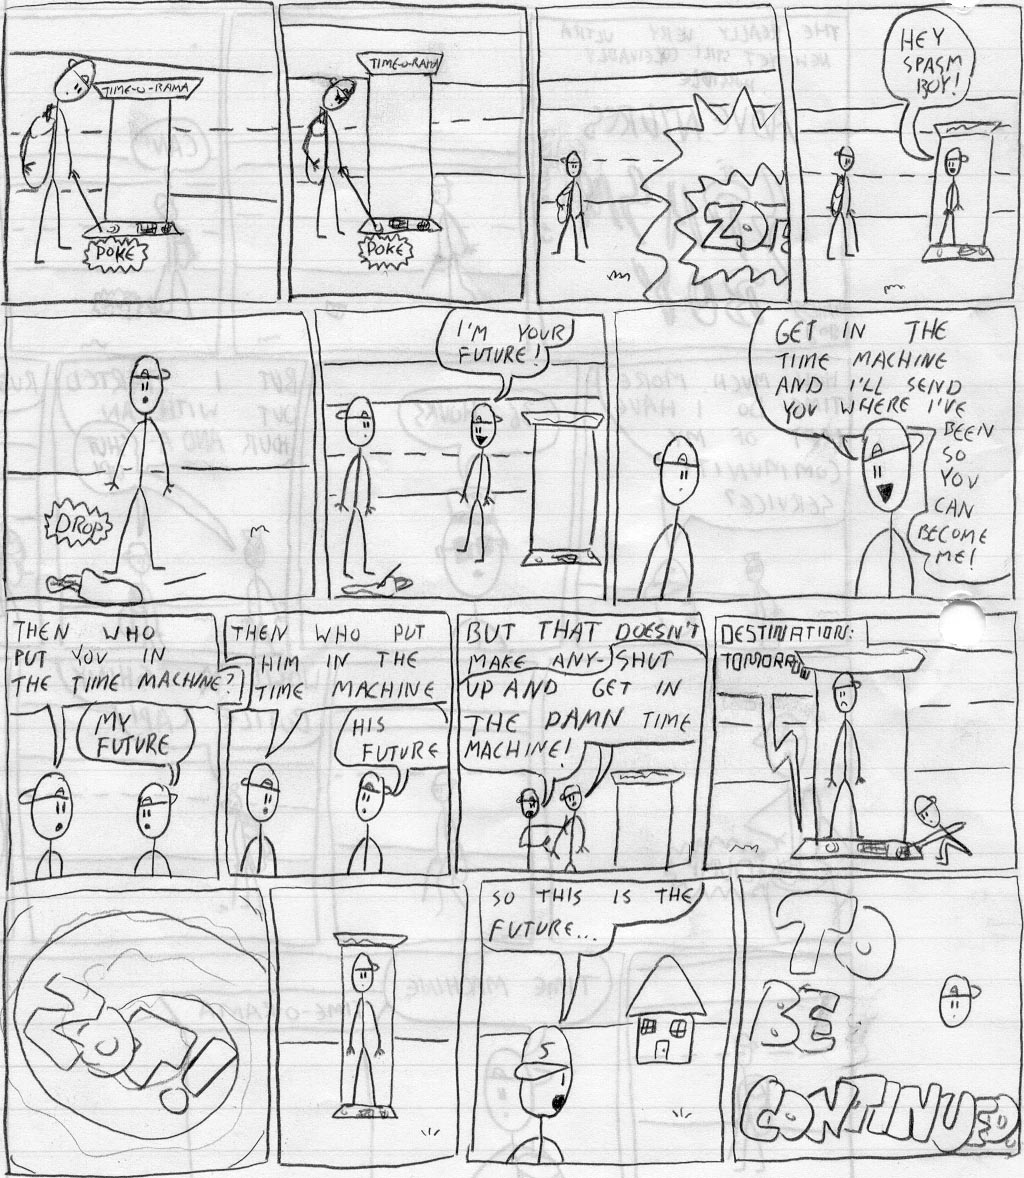 TIME-O-RAMA
POKE
TIME-O-RAMA
POKE
HEY
SPASM
BOY!
DROP
I'M YOUR
FUTURE!
GET IN THE
TIME MACHINE
AND I'LL SEND
YOU WHERE I'VE
BEEN
SO
YOU
CAN
BECOME
ME!
THEN WHO
PUT YOU IN
THE TIME MACHINE?
MY
FUTURE
THEN WHO PUT
HIM IN THE
TIME MACHINE
HIS
FUTURE
BUT THAT DOESN'T
MAKE ANY- SHUT
UP AND GET IN
THE DAMN TIME
MACHINE!
DESTINATION:
TOMORR
ZOM!
SO THIS IS THE
FUTURE...
S
TO
BE
CONTINUED